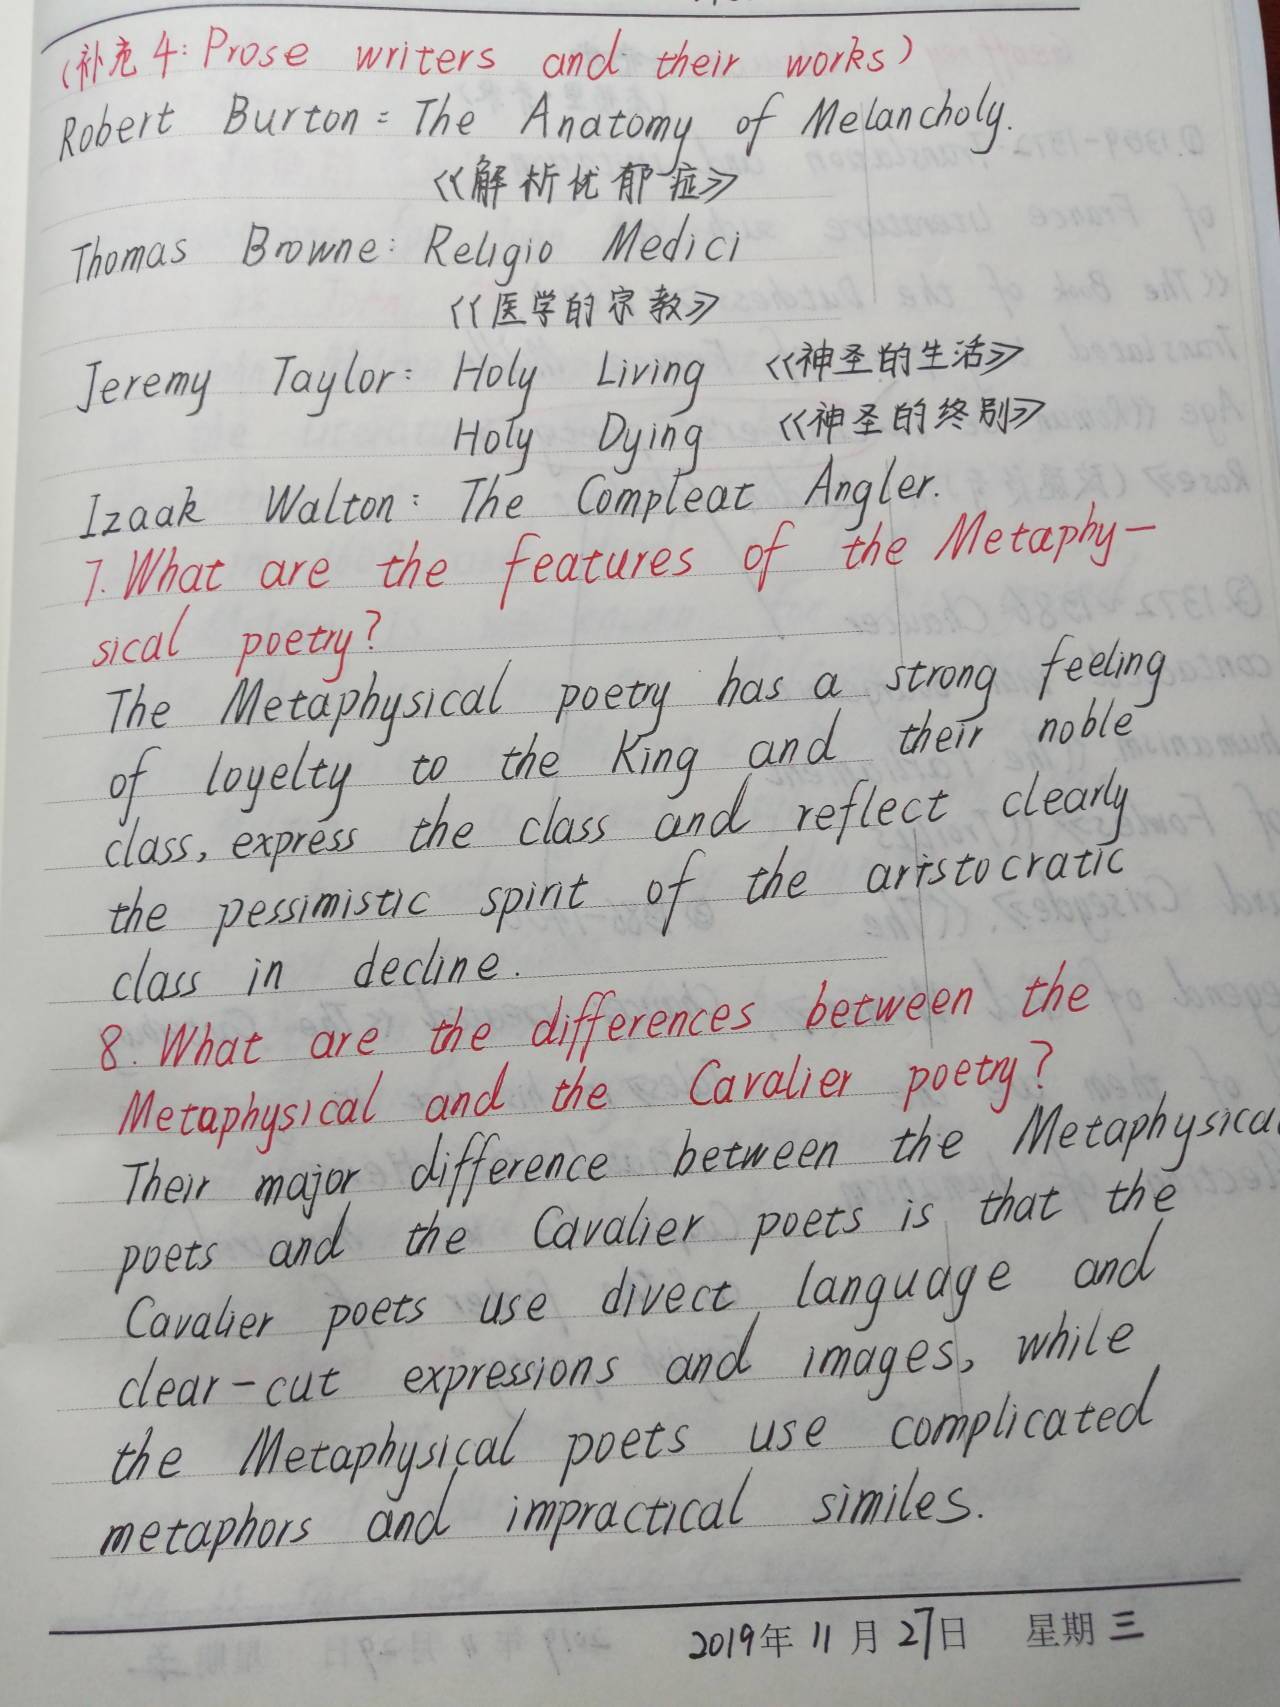 (补充4: Prose writers and their works)
Robert Burton: The Anatomy of Melancholy.
《解析忧郁症》
Thomas Browne: Religio Medici
《医学的宗教》
Jeremy Taylor: Holy Living 《神圣的生活》
Holy Dying 《神圣的终别》
Izaak Walton: The Compleat Angler.
7. What are the features of the Metaphy-
sical poetry?
The Metaphysical poetry has a strong feeling
of loyelty to the King and their noble
class, express the class and reflect clearly
the pessimistic spirit of the aristocratic
class in decline.
8. What are the differences between the
Metaphysical and the Cavalier poetry?
Their major difference between the Metaphysical
poets and the Cavalier poets is that the
Cavalier poets use divect language and
clear-cut expressions and images, while
the Metaphysical poets use complicated
metaphors and impractical similes.
2019年 11月 27日 星期 三